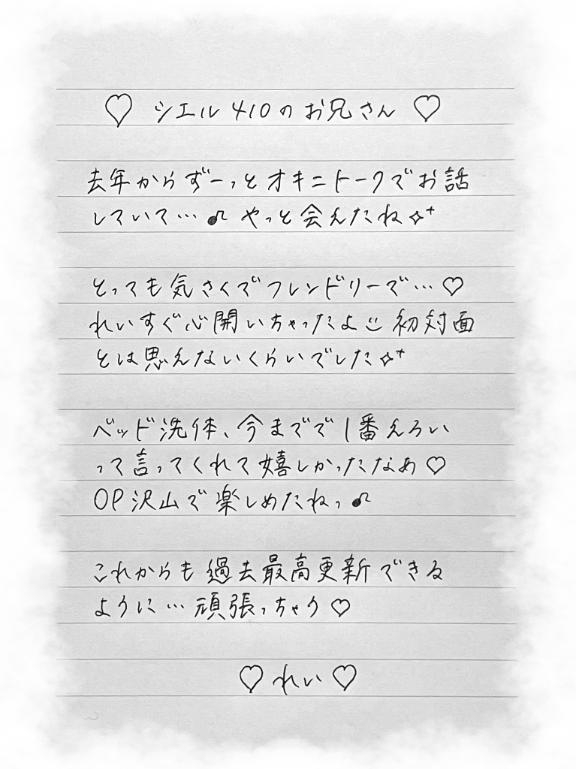 ♡ シエル410のお兄さん ♡
去年からずーっとオキニトークでお話
していて…♫ やっと会えたね✧⁺
とっても気さくでフレンドリーで…♡
れいすぐ心開いちゃったよ☺ 初対面
とは思えないくらいでした✧⁺
ベッド洗体、今までで1番えろい
って言ってくれて嬉しかったなあ♡
OP沢山で楽しめたねっ♫
これからも過去最高更新できる
ように…頑張っちゃう♡
♡ れい ♡